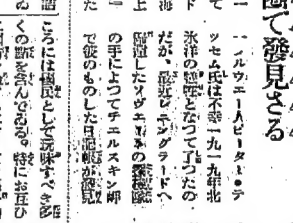 にて發見さる
一ノルウエー人ピーター・テ
ツセム氏は不幸一九一九年北
氷洋の犠牲となつて了つたの
だが、最近レニングラードへ
歸還したソヴエートの探檢隊
の手によつてチエルスキン岬
で彼のものした日記帳が發見
ころには國民として玩味すべき多
くの節を含んでゐる。特にお互ひ